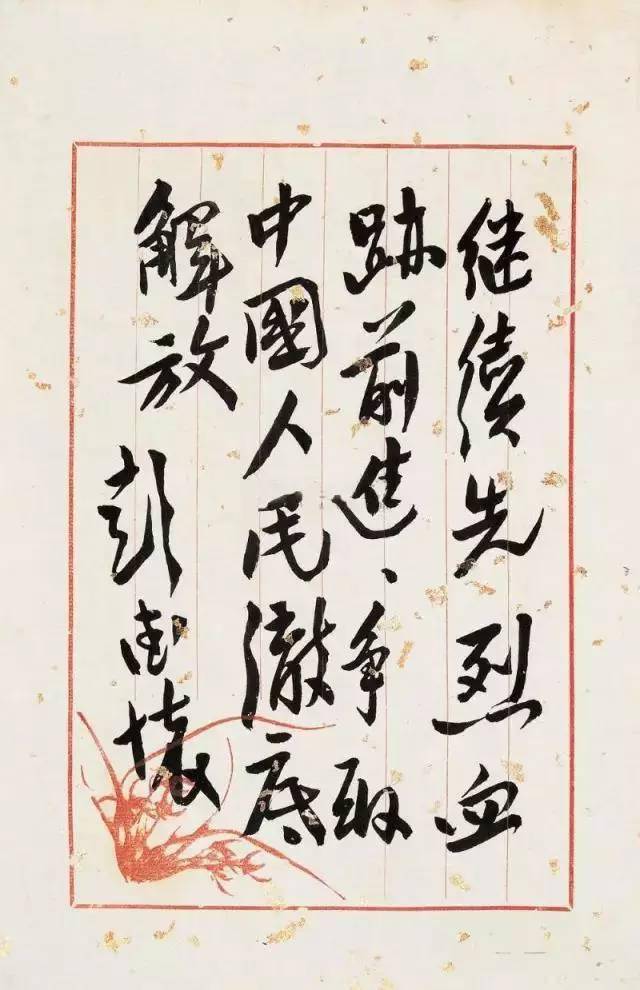 继续先烈血
跡前進、争取
中國人民徹底
解放 彭德懷